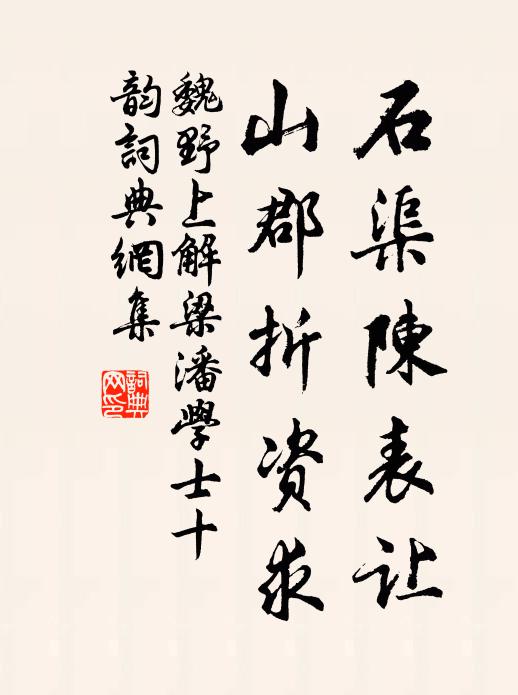 石渠陳表让
山郡折资求
魏野上解梁潘學士十
韵詞典網集
詞典网印